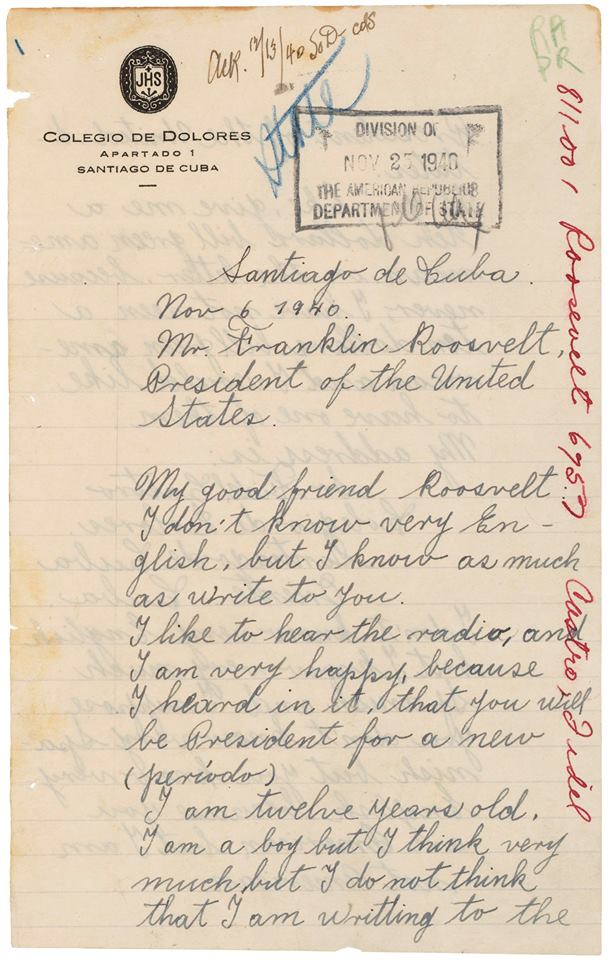 Ack. 12/13/40 SoD-cds
RA
DR
State
JHS
COLEGIO DE DOLORES
APARTADO 1
SANTIAGO DE CUBA
DIVISION OF
NOV 25 1940
THE AMERICAN REPUBLICS
DEPARTMENT OF STATE
811.001 Roosevelt 6957
Castro, Fidel
Santiago de Cuba.
Nov 6 1940.
Mr. Franklin Roosvelt,
President of the United
States.
My good friend Roosvelt:
I don't know very En-
glish, but I know as much
as write to you.
I like to hear the radio, and
I am very happy, because
I heard in it, that you will
be President for a new
(período)
I am twelve years old.
I am a boy but I think very
much but I do not think
that I am writting to the